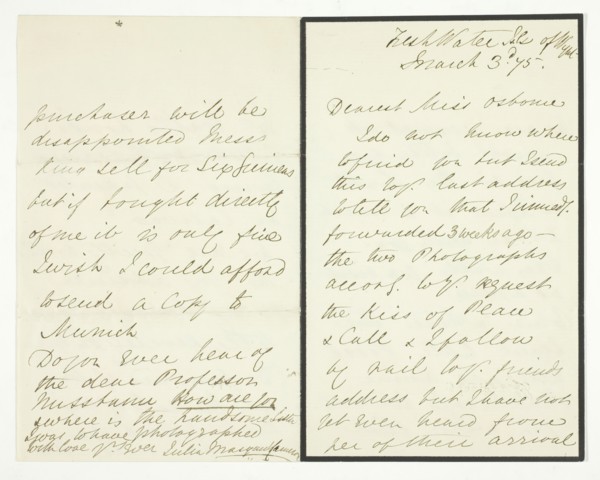 Fresh Water Isle of Wight
March 3d 75.
Dearest Miss Osborne
I do not know where
to find you but I send
this to yr. last address
to tell you that I immedy.
forwarded 3 weeks ago —
the two Photographs
accordg. to yr. request
the Kiss of Peace
& Call & I follow
by rail to yr. friends
address but I have not
yet even heard from
her of their arrival
purchaser will be
disappointed Messrs
sell for Six Guineas
but if bought directly
of me it is only five
I wish I could afford
to send a Copy to
Munich
Do you Ever hear of
the dear Professor
Nussbaum How are you
& where is the handsome Sister
I was to have photographed
with love yrs. Ever Julia Margaret Cameron